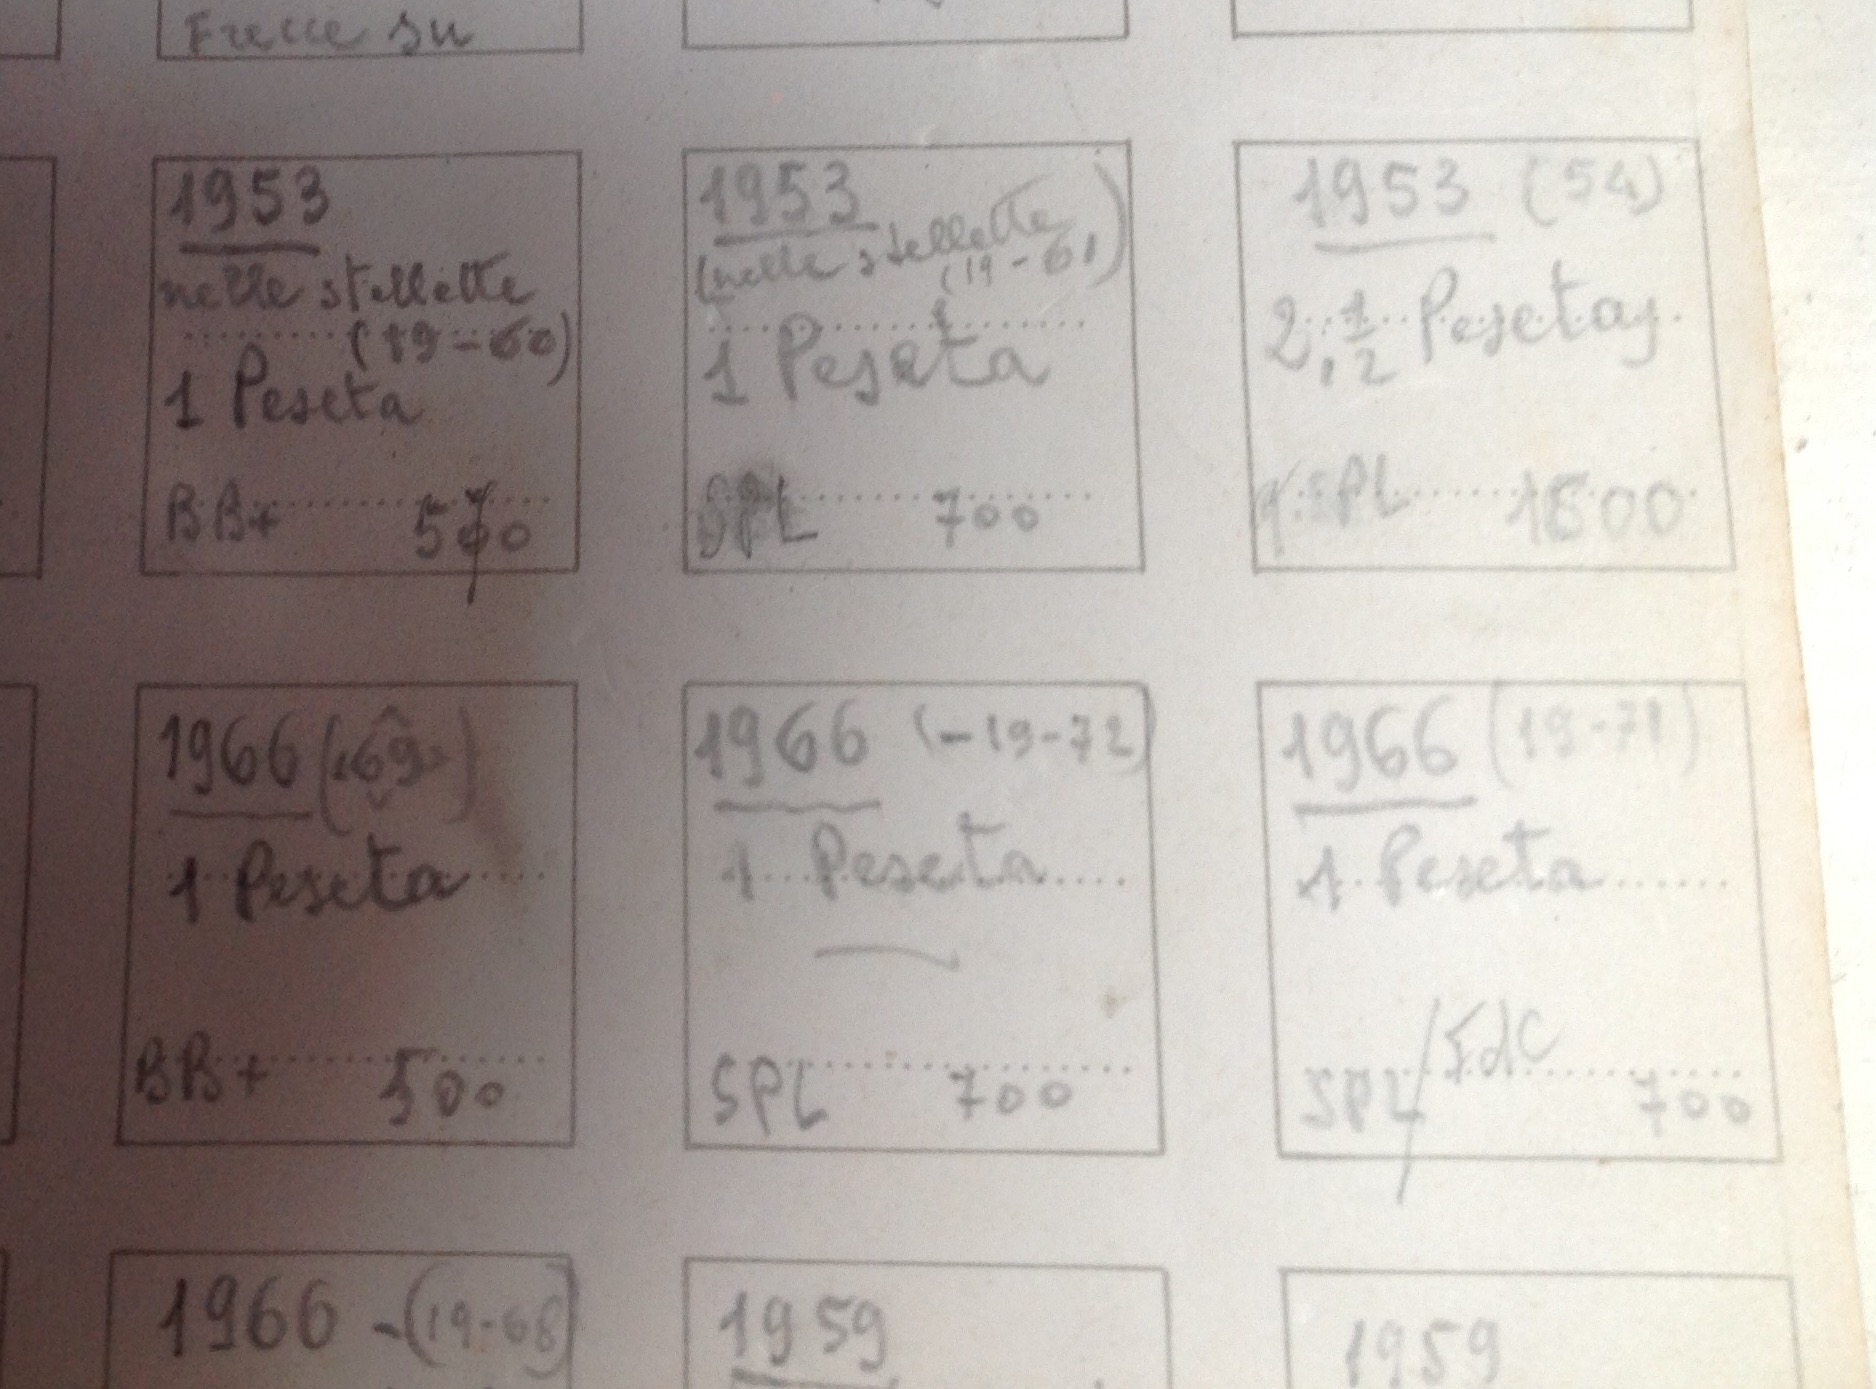 Frecce su
1953
nelle stellette
(19-60)
1 Peseta
BB+ 500
1953
(nelle stellette)
(19-61
1 Peseta
SPL 700
1953 (54)
2,1/2 Pesetas
q.SPL 1500
1966 (69)
1 Peseta
BB+ 500
1966 (-19-72)
1 Peseta
SPL 700
1966 (19-71)
1 Peseta
SPL/FdC 700
1966 -(19-68)
1959
1959